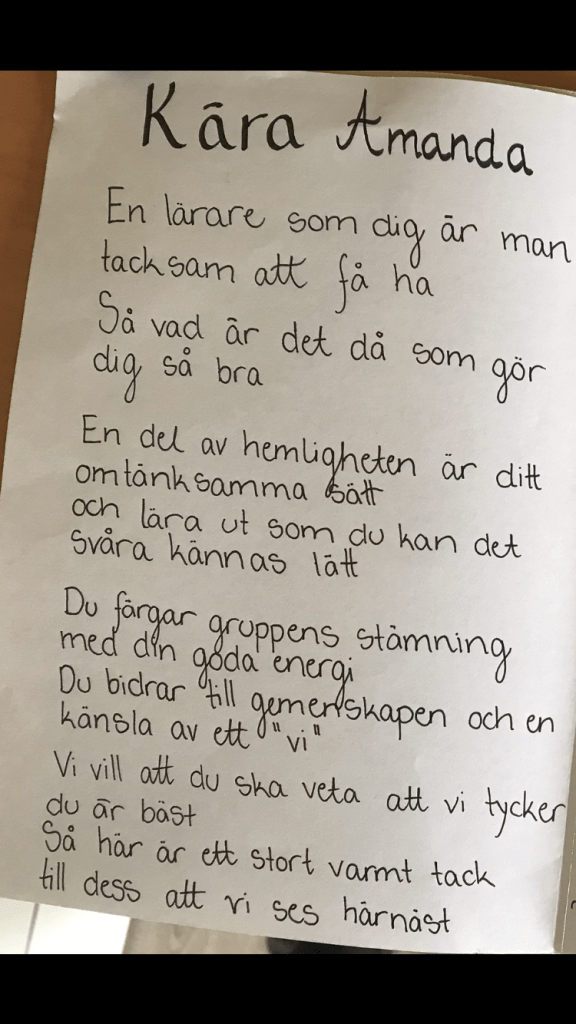 Kära Amanda
En lärare som dig är man
tacksam att få ha
Så vad är det då som gör
dig så bra
En del av hemligheten är ditt
omtänksamma sätt
och lära ut som du kan det
svåra kännas lätt
Du färgar gruppens stämning
med din goda energi
Du bidrar till gemenskapen och en
känsla av ett "vi"
Vi vill att du ska veta att vi tycker
du är bäst
Så här är ett stort varmt tack
till dess att vi ses härnäst